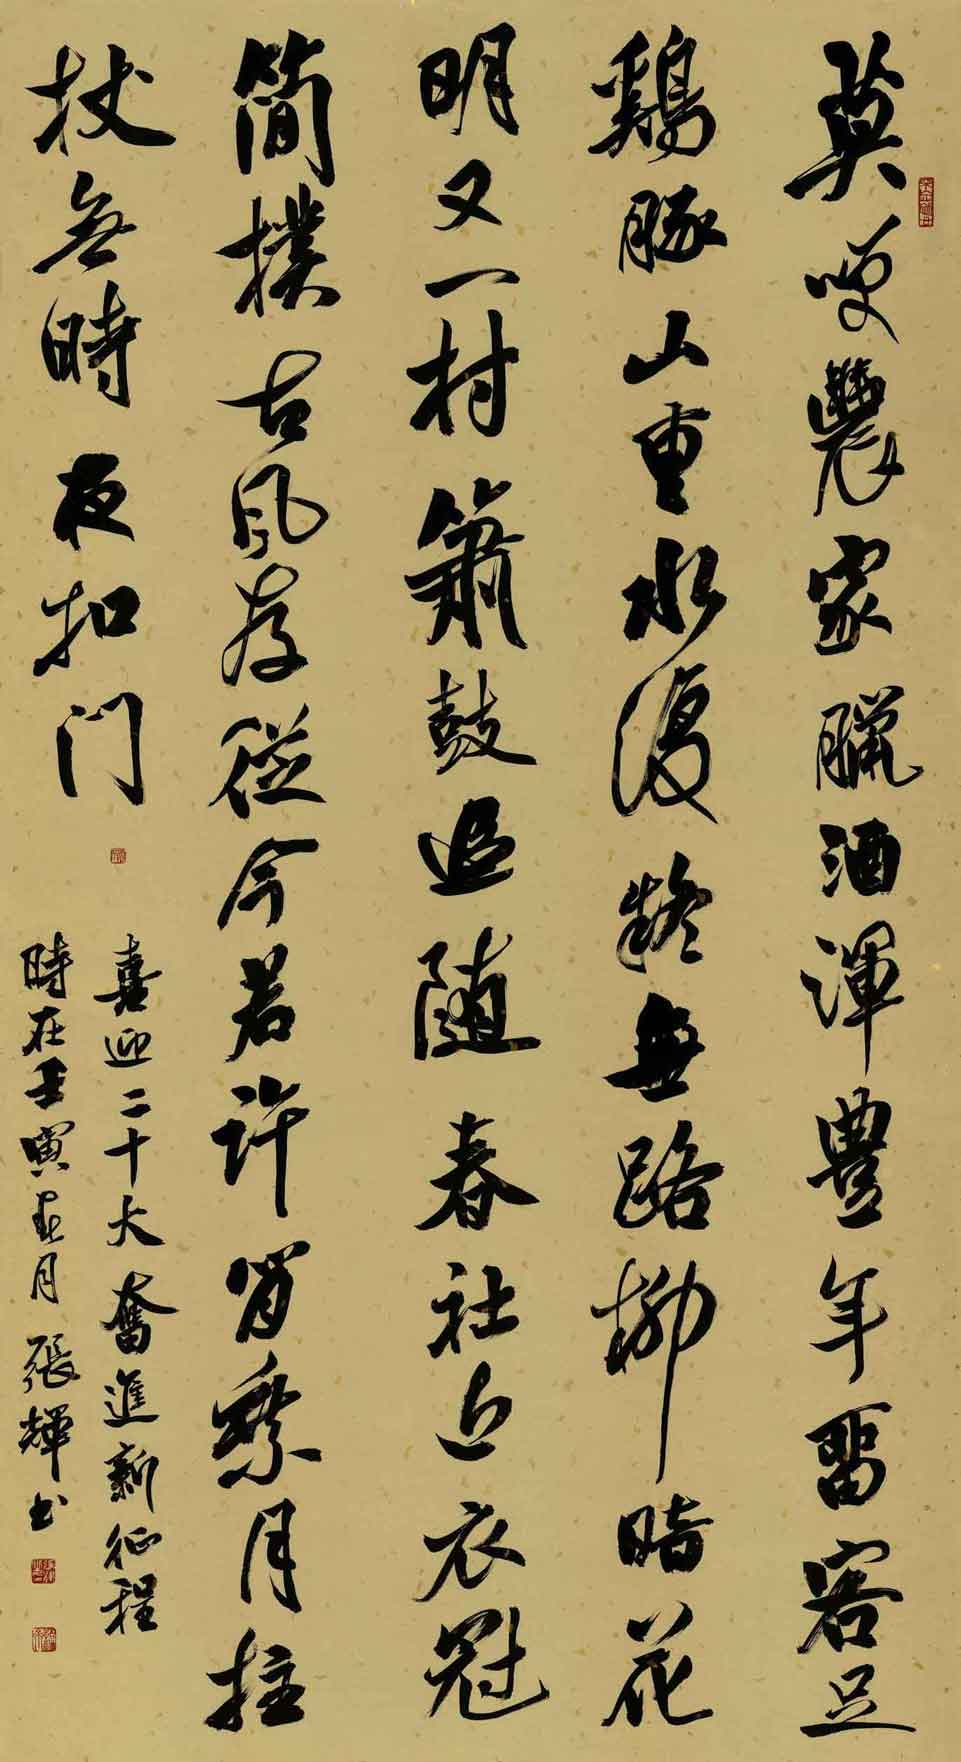 莫咲農家臘酒渾豐年留客足
鷄豚山重水復疑無路柳暗花
明又一村簫鼓追随春社近衣冠
簡樸古風存從今若許閑乘月拄
杖無時夜扣门
喜迎二十大奮進新征程
時在壬寅春月張輝书